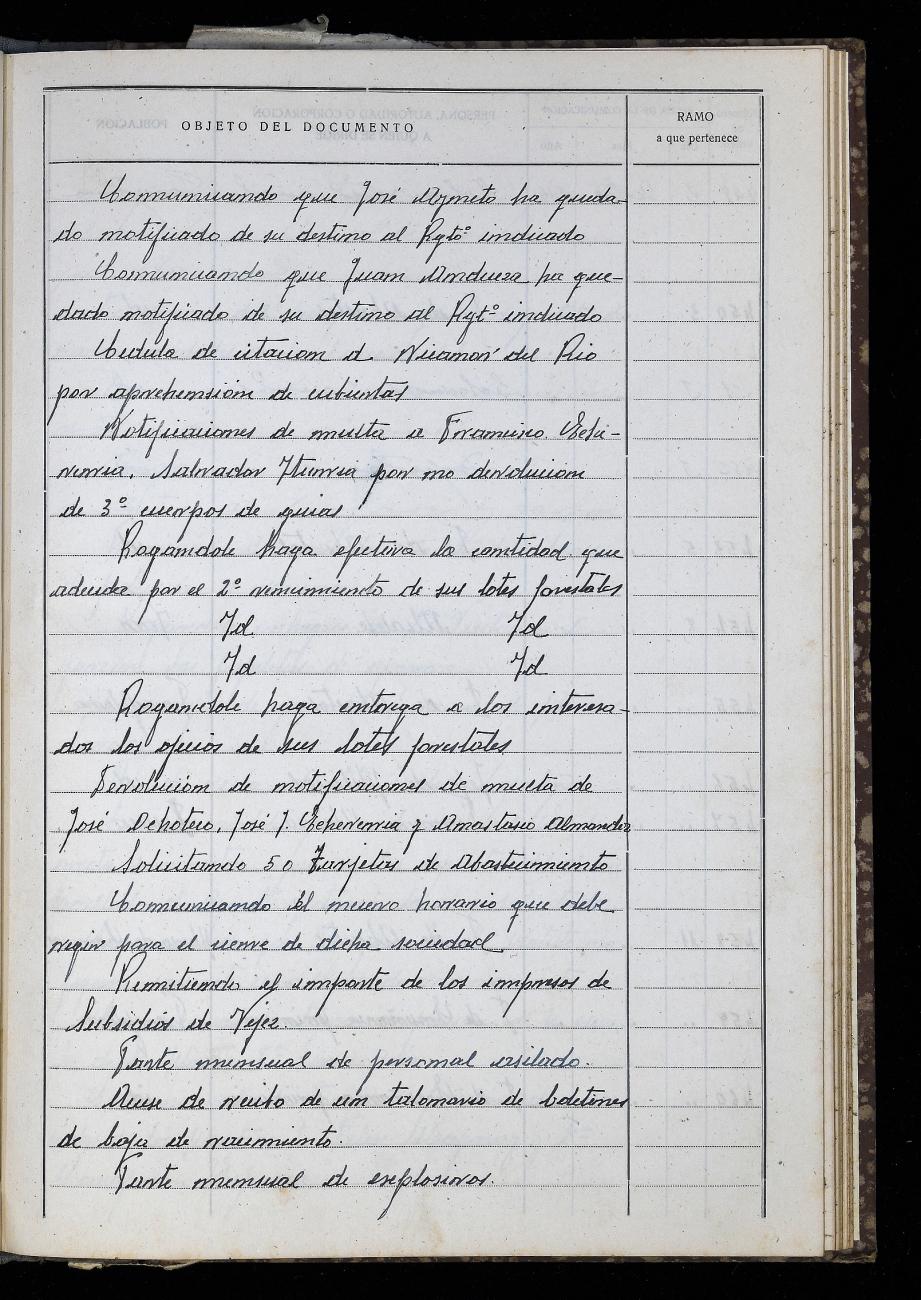 OBJETO DEL DOCUMENTO
RAMO
a que pertenece
Comunicando que José Aymeto ha queda-
do notificado de su destino al Rgtº indicado
Comunicando que Juan Andueza ha que-
dado notificado de su destino al Rgtº indicado
Cedula de citacion a Nicanor del Rio
por aprehensión de cubiertas
Notificaciones de multa a Francisco Eche-
verria, Salvador Iturria por no devolucion
de 3º cuerpos de guias
Rogandole haga efectiva la cantidad que
adeuda por el 2º vencimiento de sus lotes forestales
Id Id
Id Id
Rogandole haga entrega a los interesa-
dos los oficios de sus lotes forestales
Devolución de notificaciones de multa de
José Dehotero, José J. Echeverria y Anastasio Almandoz
Solicitando 50 Tarjetas de Abastecimiento
Comunicando el nuevo horario que debe
regir para el cierre de dicha sociedad
Remitiendo el importe de los impresos de
Subsidios de Vejez.
Parte mensual de personal asilado.
Acuse de recibo de un talonario de boletines
de baja de racimiento.
Parte mensual de explosivos.